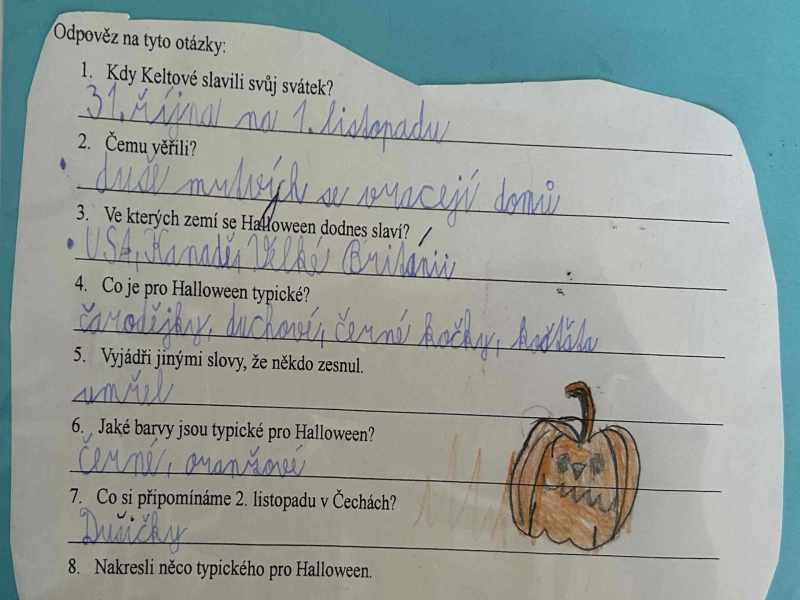 Odpověz na tyto otázky:
1. Kdy Keltové slavili svůj svátek?
31. října na 1. listopadu
2. Čemu věřili?
duše mrtvých se vracejí domů
3. Ve kterých zemí se Halloween dodnes slaví?
USA, Kanadě, Velké Británii
4. Co je pro Halloween typické?
čarodějky, duchové, černé kočky, košťata
5. Vyjádři jinými slovy, že někdo zesnul.
umřel
6. Jaké barvy jsou typické pro Halloween?
černé, oranžové
7. Co si připomínáme 2. listopadu v Čechách?
Dušičky
8. Nakresli něco typického pro Halloween.